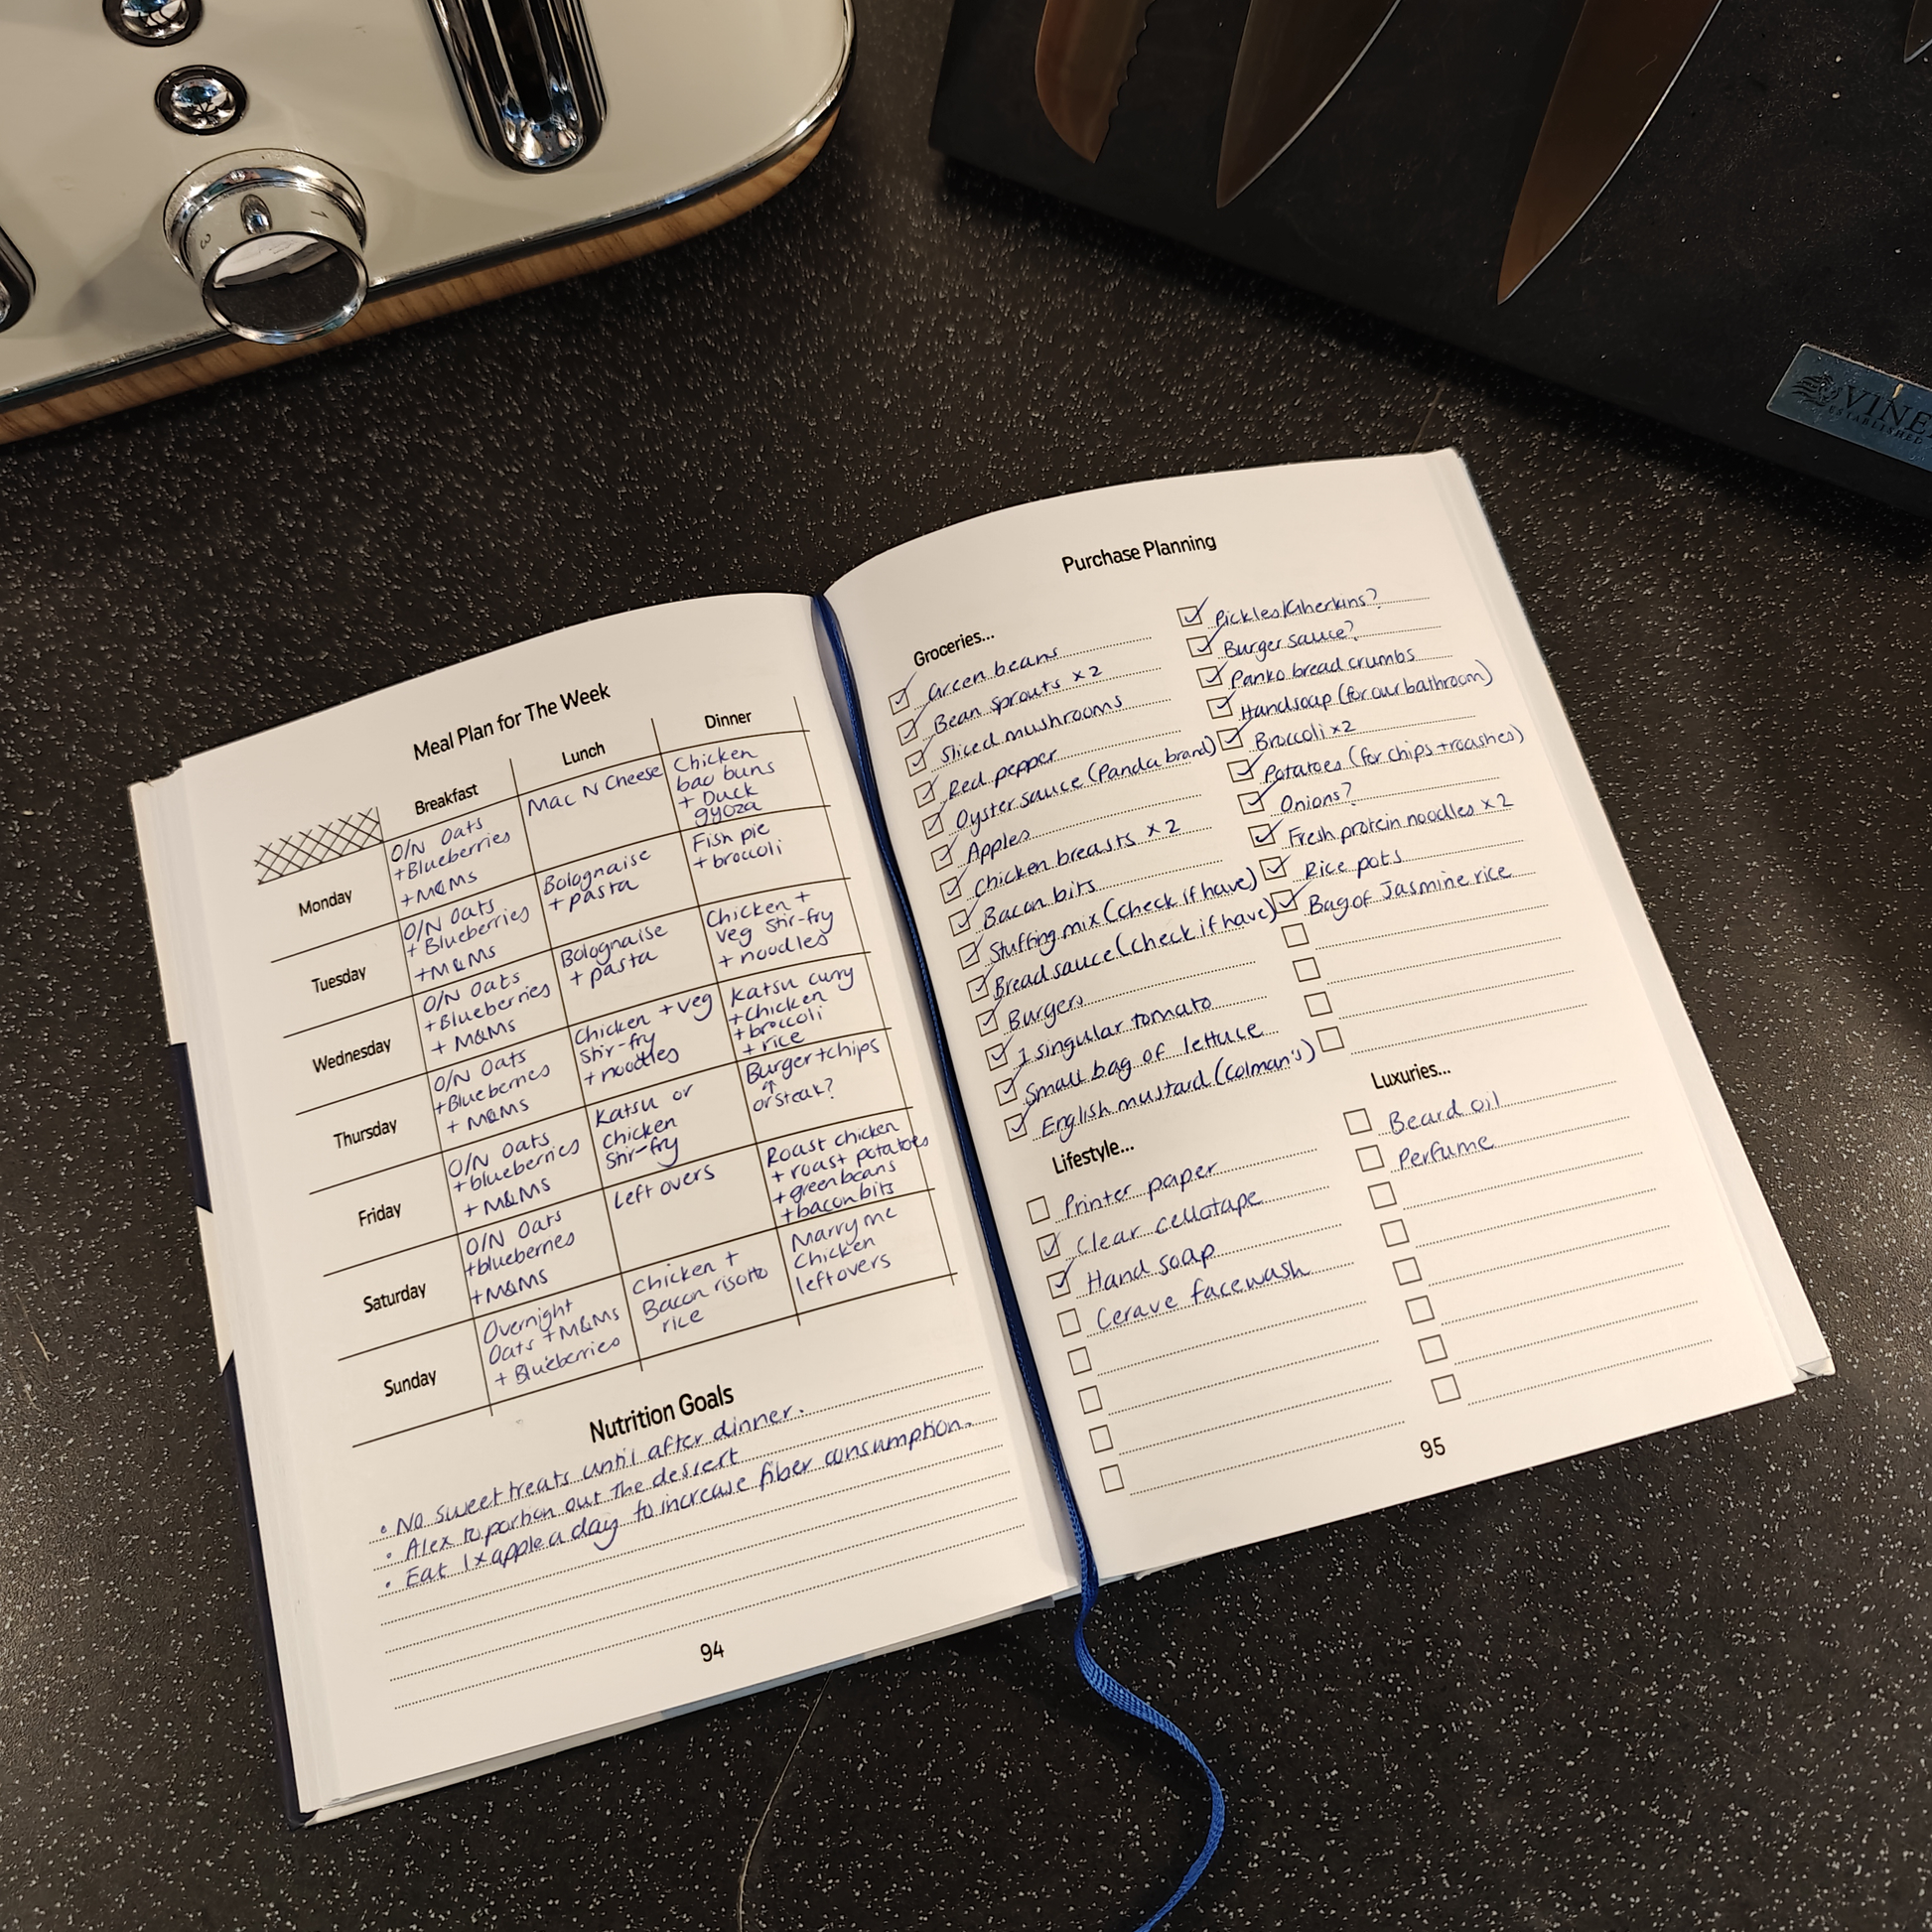 1
3
VINE
ESTABLISHED
Meal Plan for The Week
Breakfast
Lunch
Dinner
Monday
O/N Oats
+Blueberries
+M&Ms
Mac N Cheese
Chicken
bao buns
+ Duck
gyoza
Tuesday
O/N Oats
+ Blueberries
+M&Ms
Bolognaise
+ pasta
Fish pie
+ broccoli
Wednesday
O/N Oats
+Blueberries
+ M&Ms
Bolognaise
+ pasta
Chicken +
veg stir-fry
+ noodles
Thursday
O/N Oats
+Blueberries
+ M&Ms
Chicken + veg
stir-fry
+ noodles
Katsu curry
+Chicken
+broccoli
+ rice
Friday
O/N Oats
+blueberries
+ M&Ms
Katsu or
chicken
stir-fry
Burger+chips
↑
or steak?
Saturday
O/N Oats
+blueberries
+M&Ms
Left overs
Roast chicken
+ roast potatoes
+greenbeans
+baconbits
Sunday
Overnight
Oats +M&Ms
+ Blueberries
Chicken +
Bacon risotto
rice
Marry me
Chicken
leftovers
Nutrition Goals
• No sweet treats until after dinner.
• Alex to portion out the dessert
• Eat 1x apple a day to increase fiber consumption.
94
Purchase Planning
Groceries...
Green beans
Bean sprouts x2
Sliced mushrooms
Red pepper
Oyster sauce (Panda brand)
Apples
Chicken breasts x2
Bacon bits
Stuffing mix (check if have)
Bread sauce (check if have)
Burgers
1 singular tomato
Small bag of lettuce
English mustard (Colman's)
Pickles/Gherkins?
Burger sauce?
Panko bread crumbs
Handsoap (for our bathroom)
Broccoli x2
Potatoes (for chips + roashes)
Onions?
Fresh protein noodles x2
Rice pots
Bag of Jasmine rice
Lifestyle...
Printer paper
Clear cellotape
Hand soap
Cerave facewash
Luxuries...
Beard oil
Perfume
95